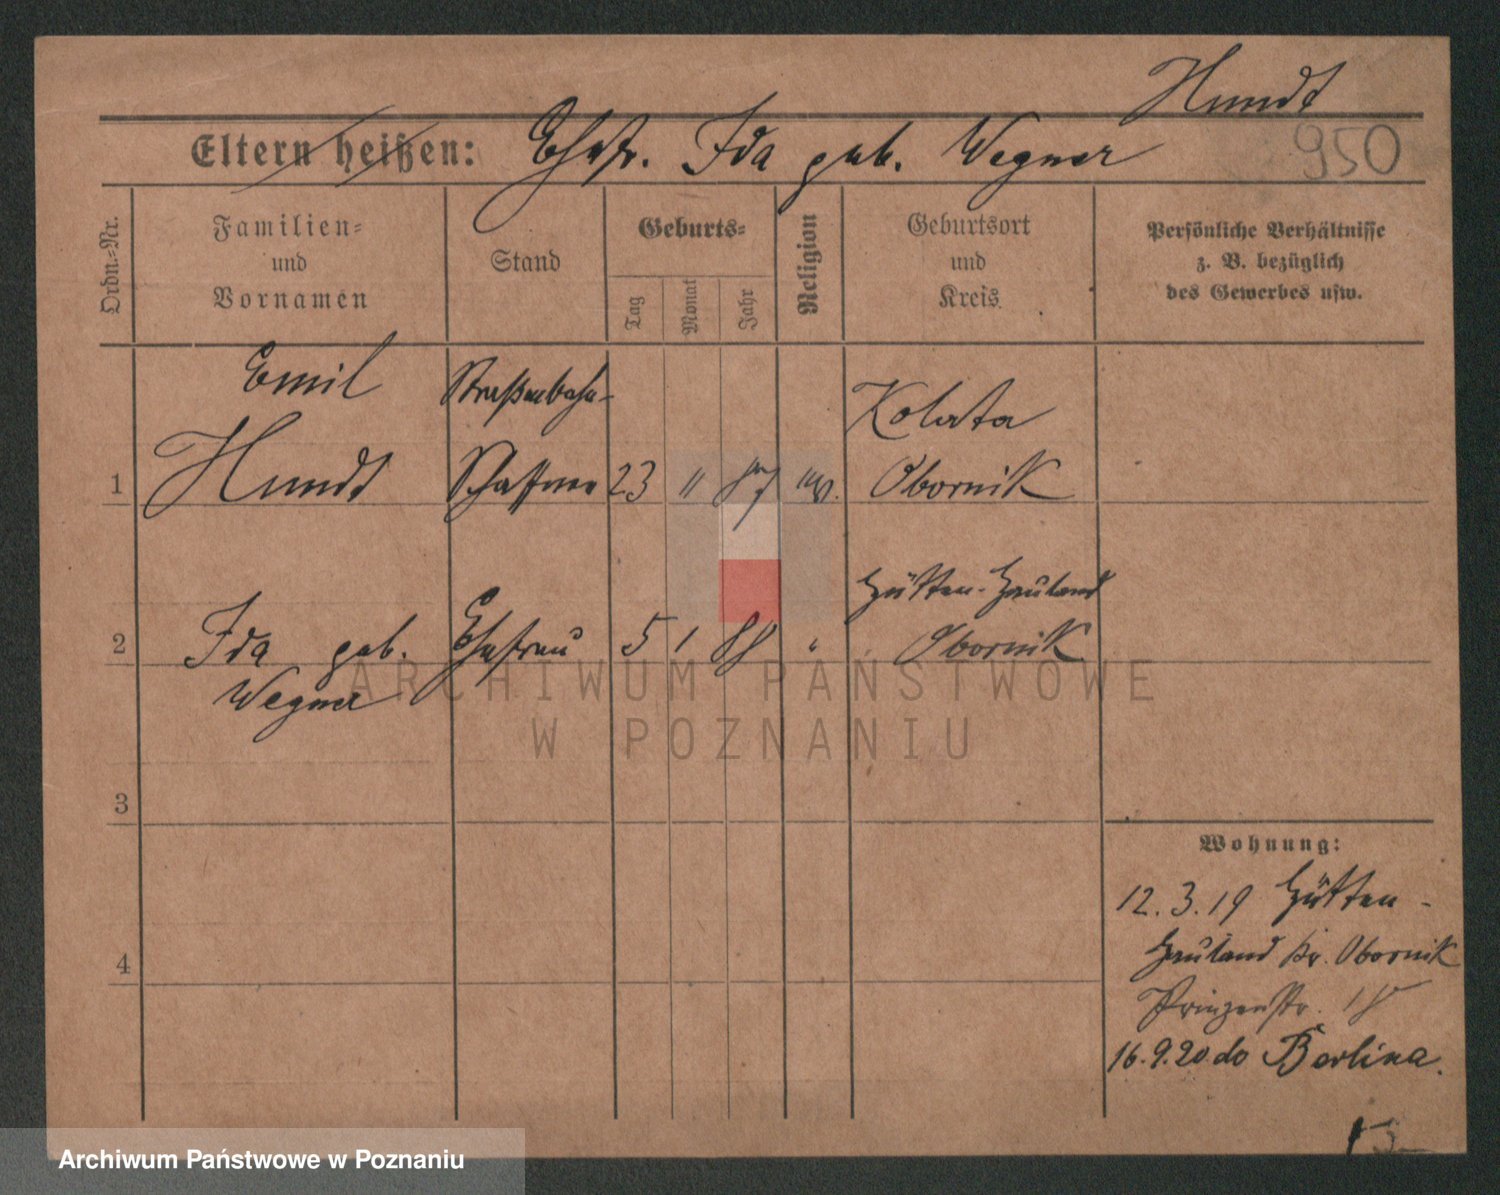 Hundt
Eltern heißen: Ehefr. Ida geb. Wegner
950
Ordn.-Nr.
Familien-
und
Vornamen
Stand
Geburts-
Tag
Monat
Jahr
Religion
Geburtsort
und
Kreis
Persönliche Verhältnisse
z. B. bezüglich
des Gewerbes usw.
Emil Straßenbahn- Kolata
1 Hundt Schaffner 23 11 87 ev. Obornik
Hütten-Hauland
2 Ida geb. Ehefrau 5 1 88 " Obornik
Wegner
ARCHIWUM PAŃSTWOWE
W POZNANIU
3
4
Wohnung:
12.3.19 Hütten-
Hauland Kr. Obornik
Prinzenstr.
16.9.20 do Berlina.
Archiwum Państwowe w Poznaniu